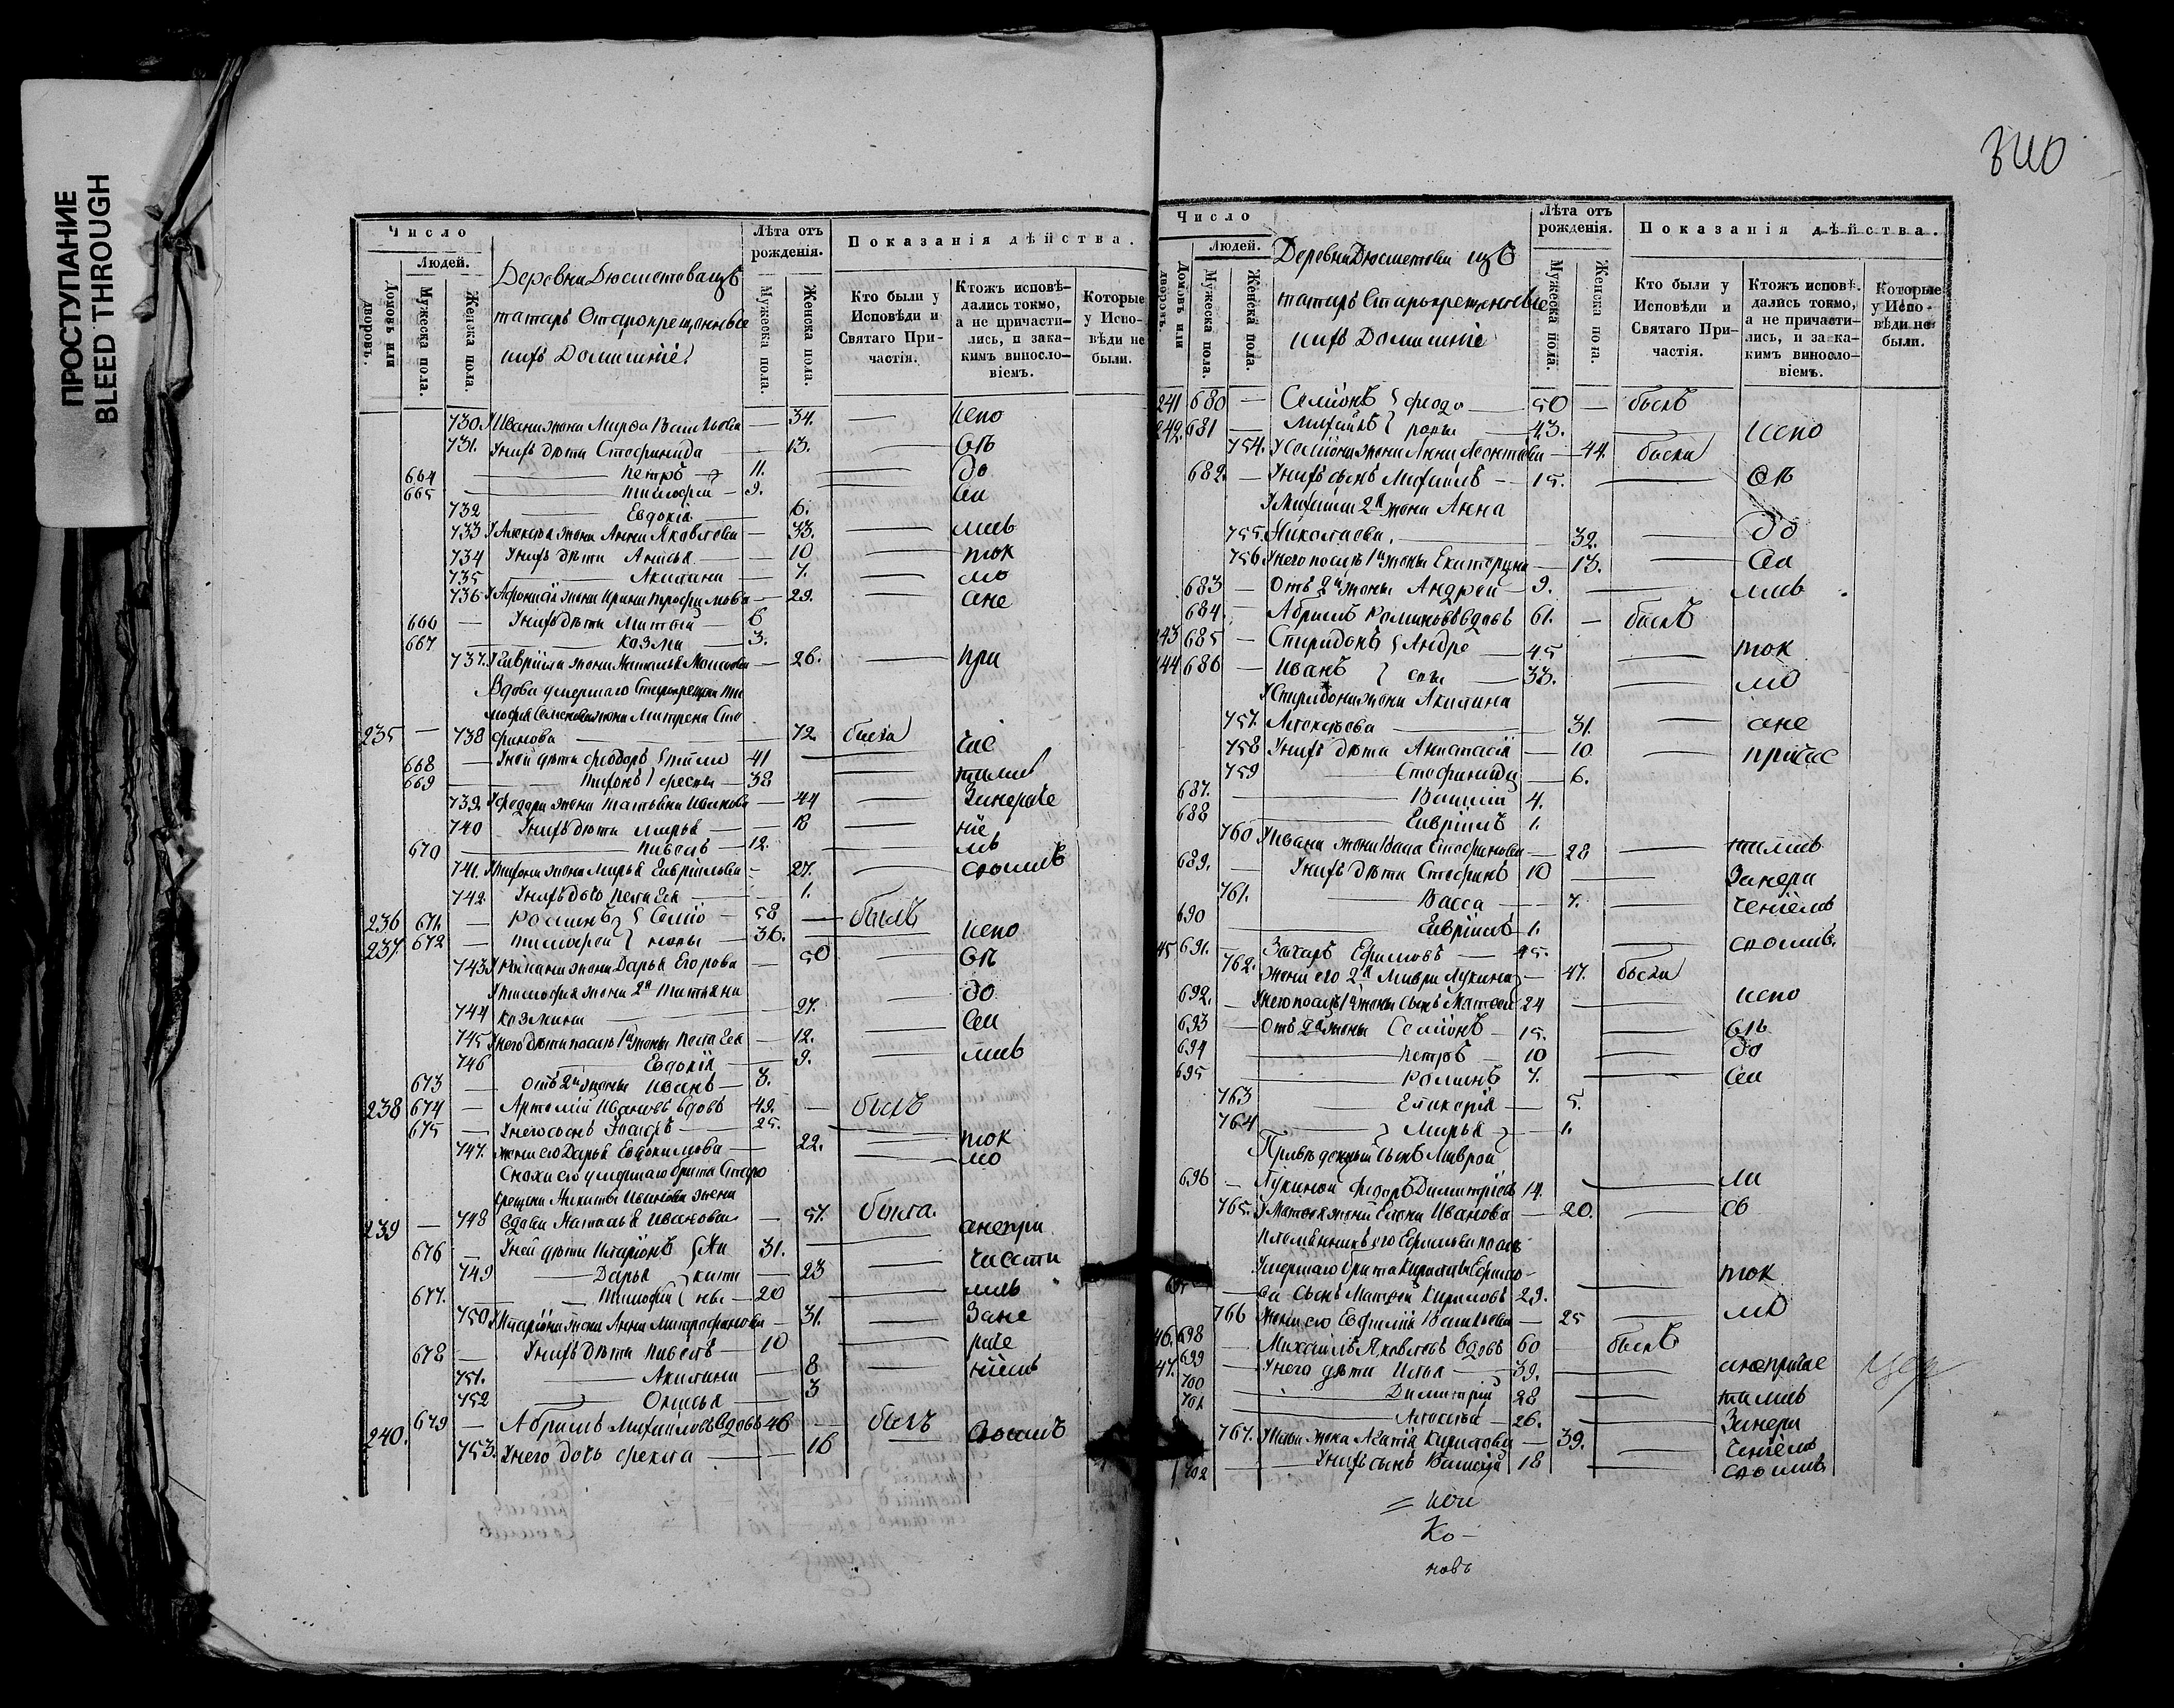 ПРОСТУПАНИЕ
BLEED THROUGH
Число
Людей.
Домовъ или дворовъ.
Мужеска пола.
Женска пола.
татаръ Старокрещенные
нихъ Домашніе
Лѣта отъ рожденія.
Мужеска пола
Женска пола.
Показанія дѣйства.
Кто были у Исповѣди и Святаго Причастія.
Ктожъ исповѣдались токмо, а не причастились, и закакимъ винословіемъ.
Которые у Исповѣди не были.
730. Ивана жена Марѳа Васильева — 34. — испо
731. У нихъ дѣти Стефанида — 13. — вѣ
664 — Петръ — 11. — до
665 — Тимофей — 9. — ва
732 — Евдокія — 6.
733 Алексѣя жена Анна Яковлева — 33. — лись
734 У нихъ дѣти Анисья — 10 — ток
735 — Акилина — 7. — мо
736 Афанасія жена Ирина Трофимова — 29. — ане
666 — У нихъ дѣти Матвей — 6
667 — Козма — 3.
737. Гавріила жена Наталья — 26. — при
Вдова умершаго Старокрещен Ти
мофея Семенова жена Матрена Сте
235 — 738 фанова — 72 была час
668 — У ней дѣти Феодоръ — 41
669 — Тихонъ — 38
739. Феодора жена Татьяна Иванова — 44
740 У нихъ дѣти Марья — 18 — ніе
670 — Павелъ — 12. — мъ
741. Тихона жена Марья Гавріилова — 27. — своимъ
742. У нихъ дочь Пелагея — 1.
236 671. — Романъ Семіо — 58 — былъ
237. 672 — Тимофей новы — 36. — испо
743 Романа жена Дарья Егорова — 50 — вѣ
Тимофея жена 2я Татьяна
744 Козмина — 27. — до
745 У него дѣти послѣ 1й жены Пелагея — 12. — ва
746 — Евдокія — 9. — лись
673 — отъ 2й жены Иванъ — 3.
238 674 — Артемій Ивановъ вдовъ 49. — былъ
675 — У него сынъ Іосифъ — 25.
747. Жена его Дарья Евдокимова — 22. — ток
мо
Сноха его умершаго брата Старо
крещена Никиты Иванова жена
239 — 748 вдова Наталья Иванова — 57. была. анепри
676 — У ней дѣти Иларіонъ Ни 31.
749 — Дарья кити — 23 — части
677. — Тимофей ны — 20 — лись
750 Иларіона жена Анна Митрофанова — 31. — Зане
678 — У нихъ дѣти Павелъ — 10
751. — Акилина — 8 — ніемъ
752 — Анисья — 3
240. 679 — Абрамъ Михайловъ вдовъ 46 — былъ своимъ
753. У него дочь Фекла — 16
340
Число
Людей.
Домовъ или дворовъ.
Мужеска пола.
Женска пола.
татаръ Старокрещенные
нихъ Домашніе
Лѣта отъ рожденія.
Мужеска пола.
Женска пола.
Показанія дѣйства.
Кто были у Исповѣди и Святаго Причастія.
Ктожъ исповѣдались токмо, а не причастились, и закакимъ винословіемъ.
Которые у Исповѣди не были.
241 680 — Семіонъ Феодо — 50 — былъ
242. 681 — Михаилъ ровы — 43. — испо
754. Семіона жена Анна Леонтьева — 44. была
682. — У нихъ сынъ Михаилъ — 15. — вѣ
Михаила 2я жена Анна
755. Николаева. — 32. — до
756 У него послѣ 1й жены Екатерина — 13. — ва
683 — Отъ 2й жены Андрей — 9. — лись
684. — Абрамъ Романовъ вдовъ 61. — былъ
243 685 — Спиридонъ Андре — 45 — ток
244 686 — Иванъ евы — 33. — мо
Спиридона жена Акилина
757. Алексѣева — 31. — ане
758 У нихъ дѣти Анастасія — 10 — причас
759 — Стефанида — 6.
687. — Василій 4.
688 — Гавріилъ 1.
760 Ивана жена Васса Стефанова — 28 — тились
689. — У нихъ дѣти Стефанъ 10 — Занера
761. — Васса — 7. — ченіемъ
690 — Гавріилъ 1.
45 691. — Захаръ Ефимовъ — 45. — своимъ
762. Жена его 2я Мавра Лукина — 47. была
692. — У него послѣ 1й жены сынъ Матвей 24 — испо
693 — Отъ 2й жены Семіонъ — 15. — вѣ
694 — Петръ — 10 — до
695 — Романъ 7. — ва
763 — Гликерія — 5.
764 — Марья — 1.
Приведенный сынъ Маврой
696 — Лукиной Феодоръ Димитріевъ 14. — ли
765. Матвея жена Елена Иванова — 20. — сь
Племянникъ его Ефимова послѣ
умершаго брата Кирилы Ефимо-
697 — ва сынъ Матвей Кириловъ 29. — ток
766 Жена его Евфимія Васильева — 25 — мо
46. 698 — Михаилъ Яковлевъ вдовъ 60 — былъ
47. 699 — У него дѣти Илья — 39. — анепричас
700 — Димитрій 28 — тились
701 — Алексѣй — 26. — Занера
767. Ильи жена Агапія Кирилова — 39. — ченіемъ
702 — У нихъ сынъ Василій 18 — своимъ
Ко-
новъ